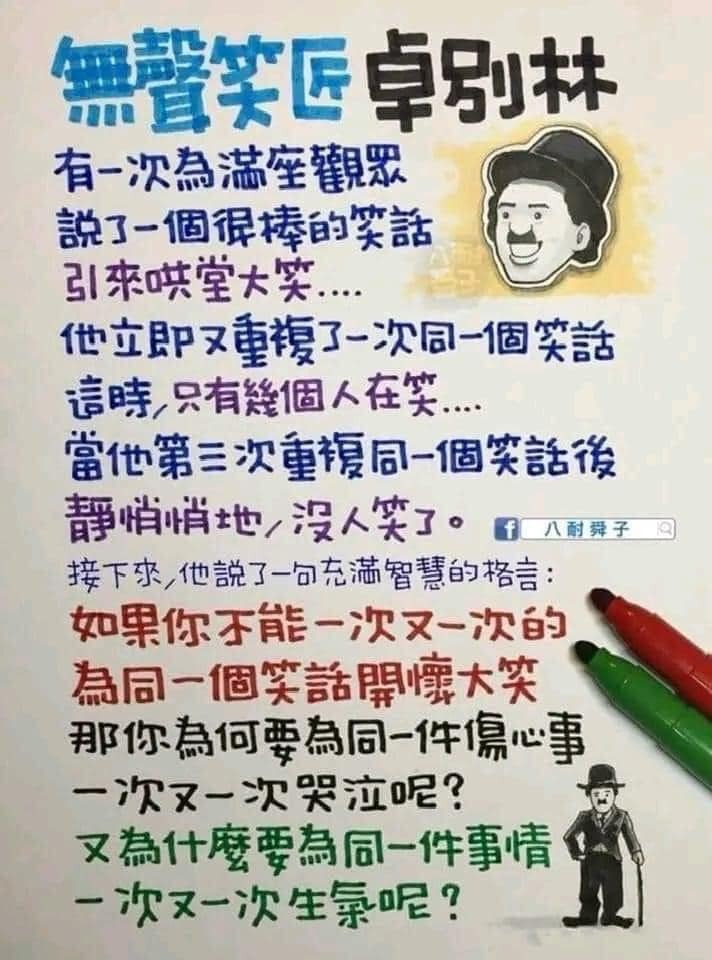 無聲笑匠 卓別林
有一次為滿座觀眾
說了一個很棒的笑話
引來哄堂大笑....
他立即又重複了一次同一個笑話
這時,只有幾個人在笑....
當他第三次重複同一個笑話後
靜悄悄地,沒人笑了。
f 八耐舜子
接下來,他說了一句充滿智慧的格言:
如果你不能一次又一次的
為同一個笑話開懷大笑
那你為何要為同一件傷心事
一次又一次哭泣呢?
又為什麼要為同一件事情
一次又一次生氣呢?